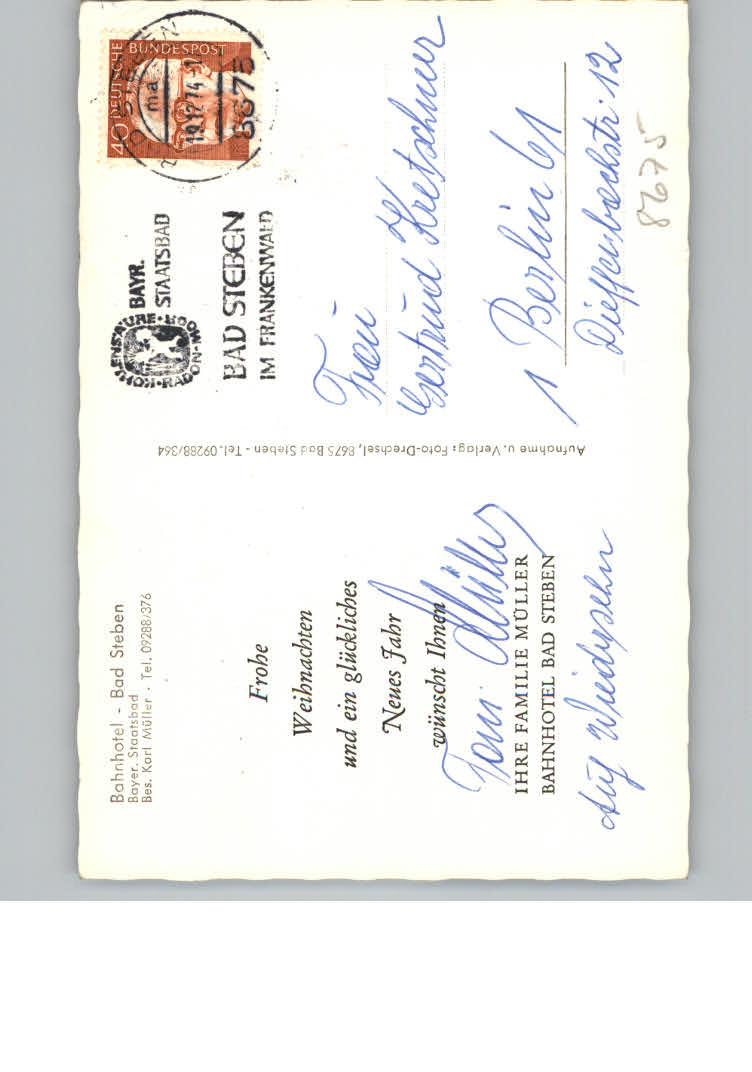 Bahnhotel - Bad Steben
Bayer. Staatsbad
Bes. Karl Müller · Tel. 09288/376
Frohe
Weihnachten
und ein glückliches
Neues Jahr
wünscht Ihnen
Fam. Müller
IHRE FAMILIE MÜLLER
BAHNHOTEL BAD STEBEN
Auf Wiedersehn
Aufnahme u. Verlag: Foto-Drechsel, 8675 Bad Steben - Tel. 09288/364
KOHLENSÄURE · MOOR · RADON
BAYR.
STAATSBAD
BAD STEBEN
IM FRANKENWALD
40 DEUTSCHE BUNDESPOST
STEBEN
19.12.74
8675
Frau
Gertrud Kretschmer
1 Berlin 61
Dieffenbachstr. 12
8675